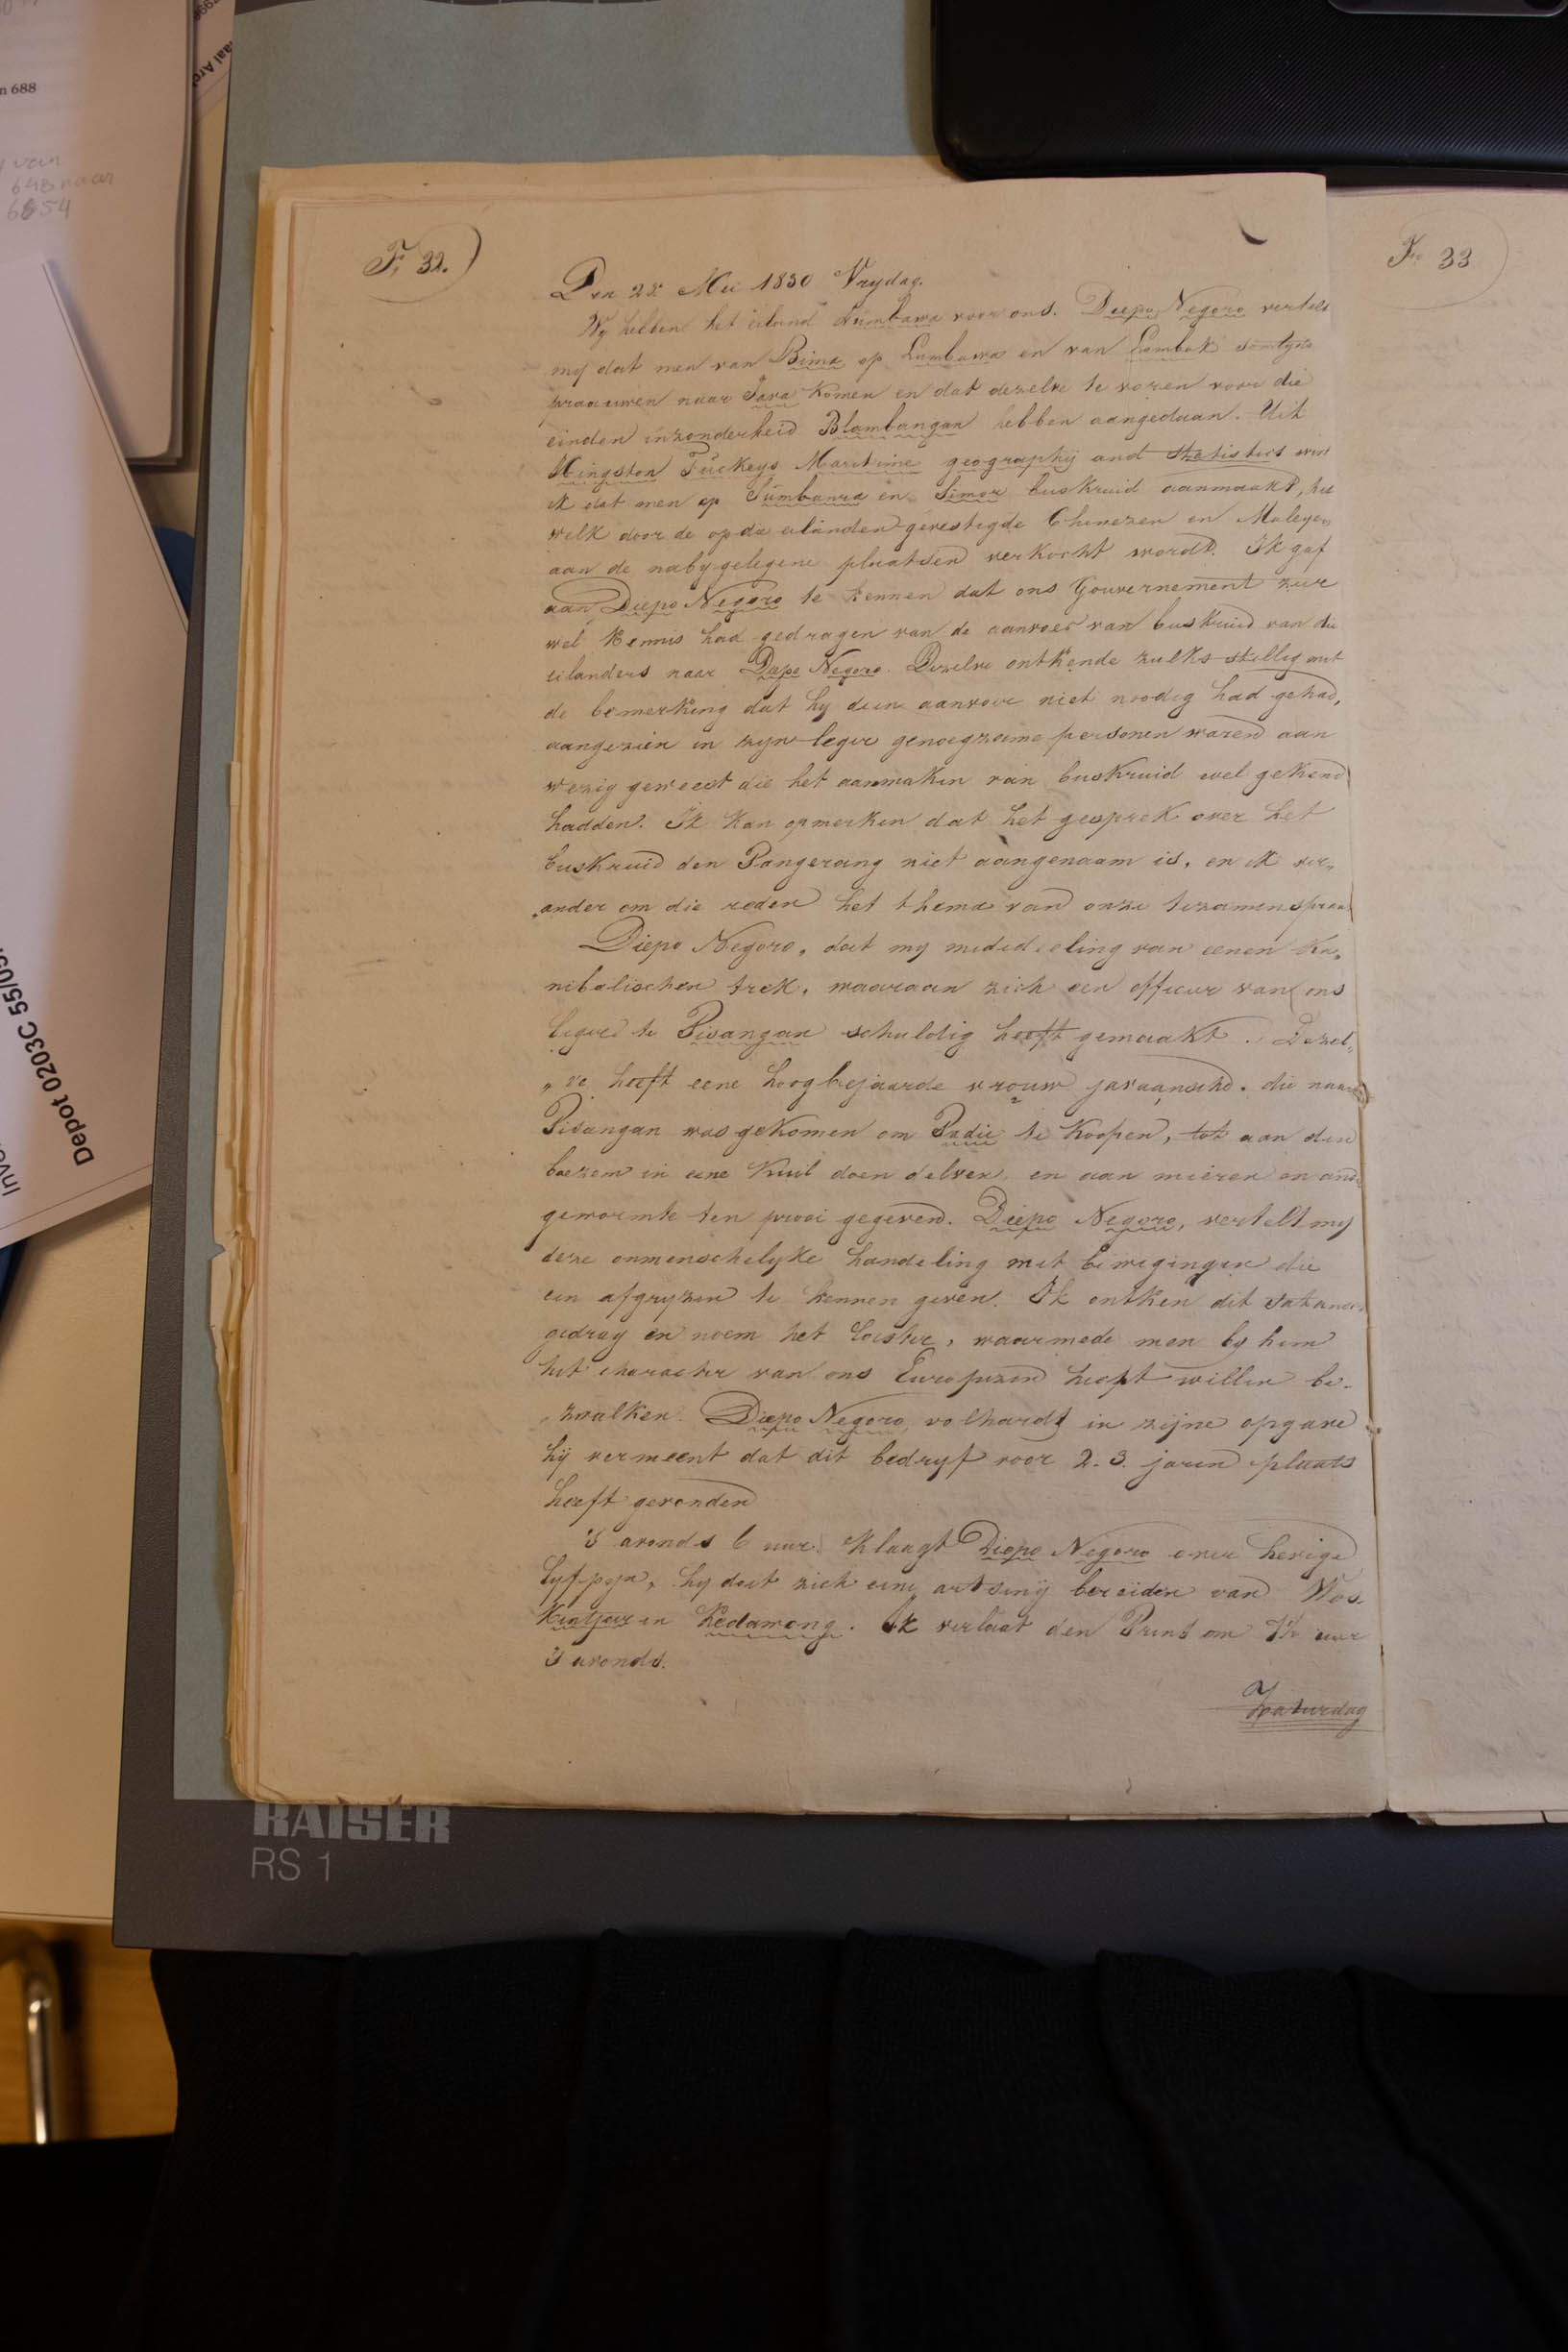 n 688
van
648 naar
6854
aal Arc
Inv
Depot 0203C 55/05
F. 32.
Den 28 Mei 1830 Vrydag.
Wy hebben het eiland Sumbawa voor ons. Diepo Negoro verteld
my dat men van Bima op Sumbawa en van Lombok somtyds
praauwen naar Java komen en dat dezelve te voren voor die
einden inzonderheid Blambangan hebben aangedaan. Uit
Kingston Tuckeys Maritime geography and statistics
ik dat men op Sumbawa en Timor buskruid aanmaakt, het
welk door de op die eilanden gevestigde Chinezen en Maleyers
aan de nabygelegene plaatsen verkocht wordt. Ik gaf
aan Diepo Negoro te kennen dat ons Gouvernement zeer
wel kennis had gedragen van de aanvoer van buskruid van die
eilanders naar Diepo Negoro. Dezelve ontkende zulks stellig met
de bemerking dat hy dien aanvoer niet noodig had gehad,
aangezien in zyn leger genoegzame personen waren aan
wezig geweest die het aanmaken van buskruid wel gekend
hadden. Ik kan opmerken dat het gesprek over het
buskruid den Pangerang niet aangenaam is, en ik ver„
„ander om die reden het thema van onze tezamenspraak
Diepo Negoro, doet my mededeeling van eenen Ka„
nibalischen trek, waaraan zich een officier van ons
leger te Pisangan schuldig heeft gemaakt. Dezel„
„ve heeft eene hoogbejaarde vrouw javaansche. die naar
Pisangan was gekomen om Padie te koopen, tot aan den
boezem in eene kuil doen delven, en aan mieren en ander
gewormte ten prooi gegeven. Diepo Negoro, vertelt my
deze onmenschelyke handeling met bewegingen die
een afgryzen te kennen geven. Ik ontken dit
gedrag en noem het laster, waarmede men by hem
het character van ons Europezen heeft willen be-
„zwalken. Diepo Negoro volhardt in zijne opgave
hij vermeent dat dit bedryf voor 2. 3. jaren plaats
heeft gevonden
's avonds 6 uur klaagt Diepo Negoro over hevige
lyfpyn, hy doet zich eene artsenij bereiden van Was.
Kentjoer en Kedawong. Ik verlaat den Prins om 7½ uur
's avonds.
Zaturdag
F. 33
KAISER
RS 1